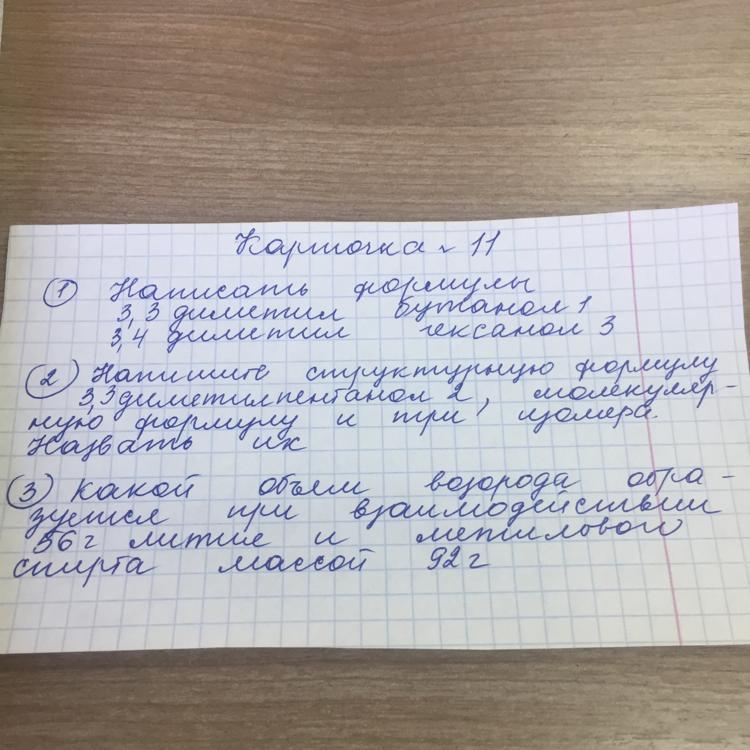 Карточка № 11
① Написать формулы
3,3 диметил бутанол 1
3,4 диметил гексанол 3
② Напишите структурную формулу
3,3 диметилпентанол 2, молекуляр-
ную формулу и три изомера.
Назвать их
③ Какой объем возорода обра-
зуется при взаимодействии
56 г лития и метиловой
спирта массой 92 г